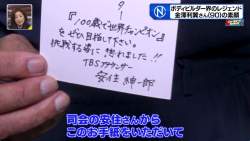 ボディビルダー界のレジェンド
金澤利翼さん(90)の素顔
『100歳で世界チャンピオン』
をぜひ目指して下さい。
挑戦する姿に惚れました!!
TBSアナウンサー
安住 紳一郎
司会の安住さんから
このお手紙をいただいて